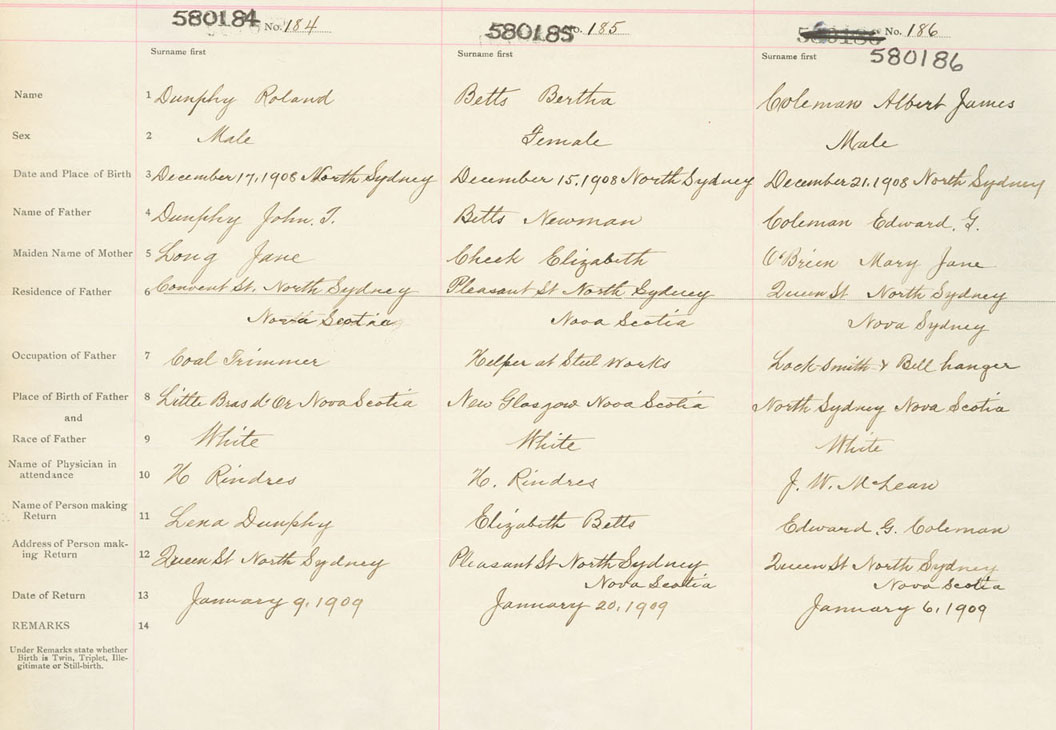 580184 No. 184 580185 No. 185 580186 No. 186
580186
Surname first Surname first Surname first
Name 1 Dunphy Roland Betts Bertha Coleman Albert James
Sex 2 Male Female Male
Date and Place of Birth 3 December 17, 1908 North Sydney December 15, 1908 North Sydney December 21, 1908 North Sydney
Name of Father 4 Dunphy John. T. Betts Newman Coleman Edward. G.
Maiden Name of Mother 5 Long Jane Cheek Elizabeth O'Brien Mary Jane
Residence of Father 6 Convent St. North Sydney Pleasant St North Sydney Queen St North Sydney
Nova Scotia Nova Scotia Nova Sydney
Occupation of Father 7 Coal Trimmer Helper at Steel Works Lock-Smith & Bell hanger
Place of Birth of Father 8 Little Bras d'Or Nova Scotia New Glasgow Nova Scotia North Sydney Nova Scotia
and
Race of Father 9 White White White
Name of Physician in
attendance 10 H Rindres H. Rindres J. W. McLean
Name of Person making
Return 11 Lena Dunphy Elizabeth Betts Edward. G. Coleman
Address of Person mak-
ing Return 12 Queen St North Sydney Pleasant St North Sydney Queen St North Sydney
Nova Scotia Nova Scotia
Date of Return 13 January 9, 1909 January 20, 1909 January 6, 1909
REMARKS 14
Under Remarks state whether
Birth is Twin, Triplet, Ille-
gitimate or Still-birth.